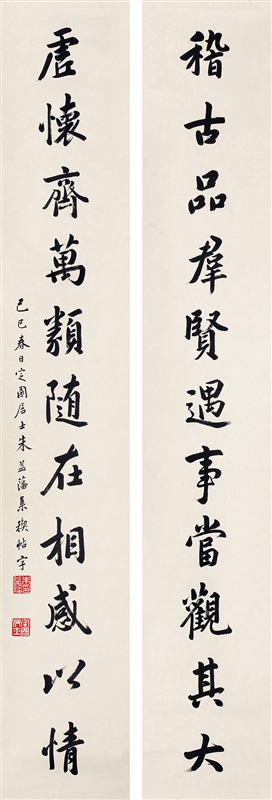 稽古品群賢遇事當觀其大
虛懷齊萬類隨在相感以情
己巳春日定園居士朱益藩集禊帖字